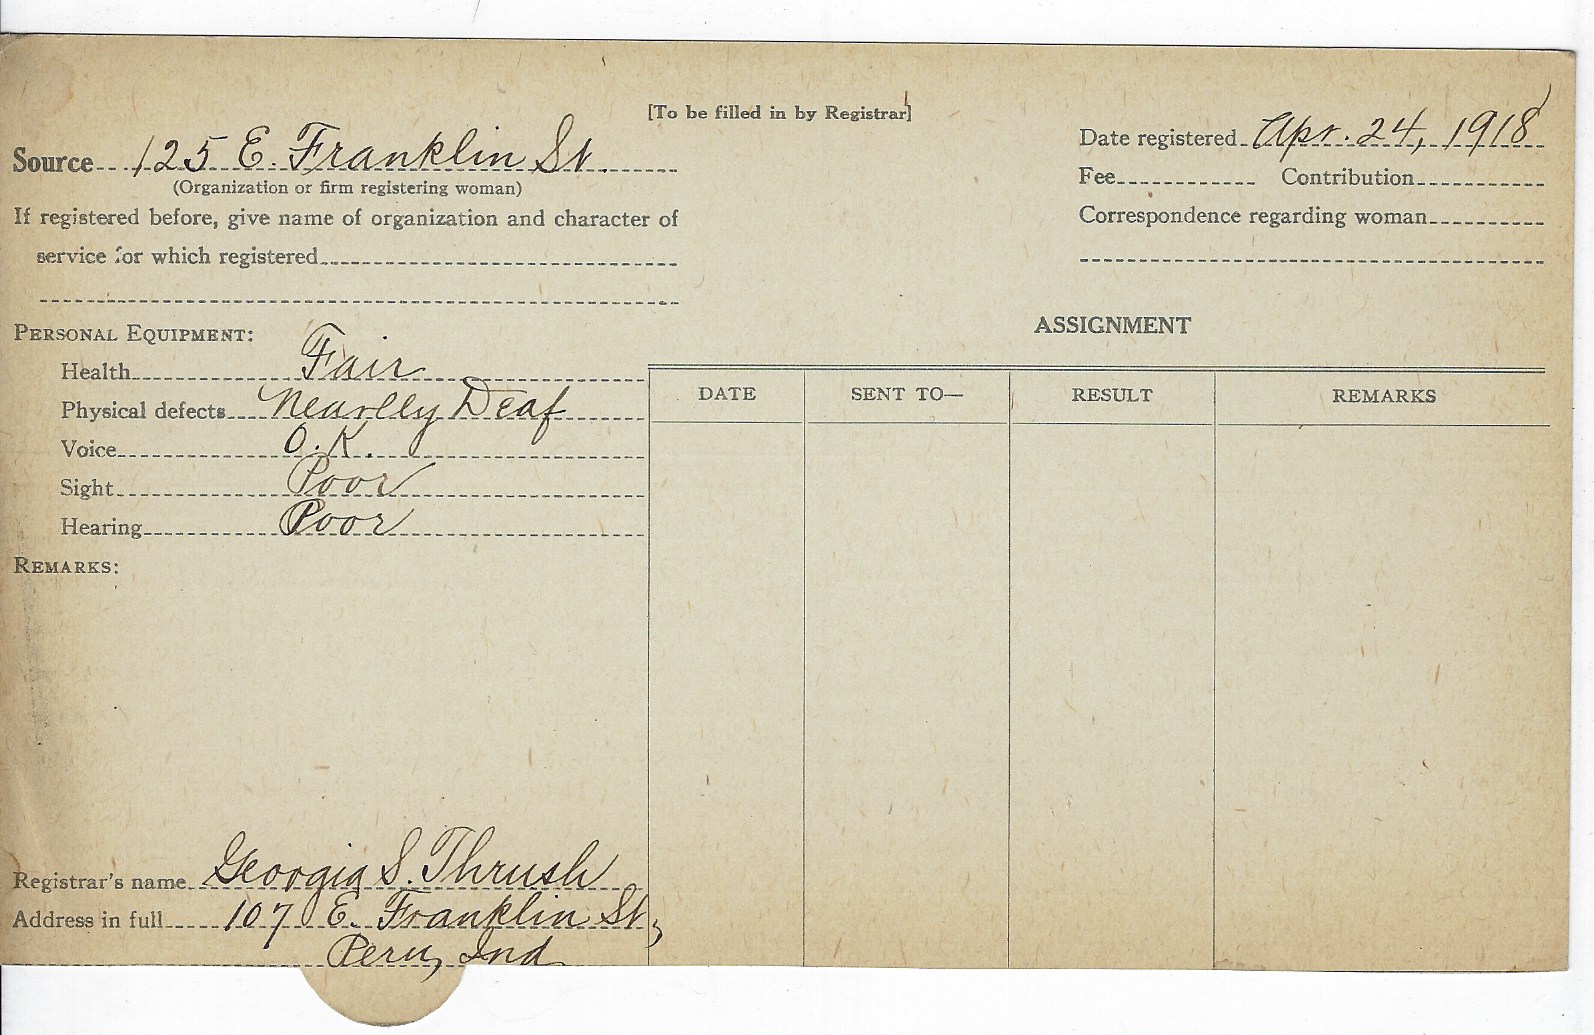 [To be filled in by Registrar]
Source 125 E. Franklin St.
(Organization or firm registering woman)
If registered before, give name of organization and character of
service for which registered
Date registered Apr. 24, 1918
Fee Contribution
Correspondence regarding woman
PERSONAL EQUIPMENT:
Health Fair
Physical defects Nearlly Deaf
Voice O.K.
Sight Poor
Hearing Poor
REMARKS:
Registrar's name Georgia S. Thrush
Address in full 107 E. Franklin St,
Peru, Ind
ASSIGNMENT
DATE SENT TO— RESULT REMARKS